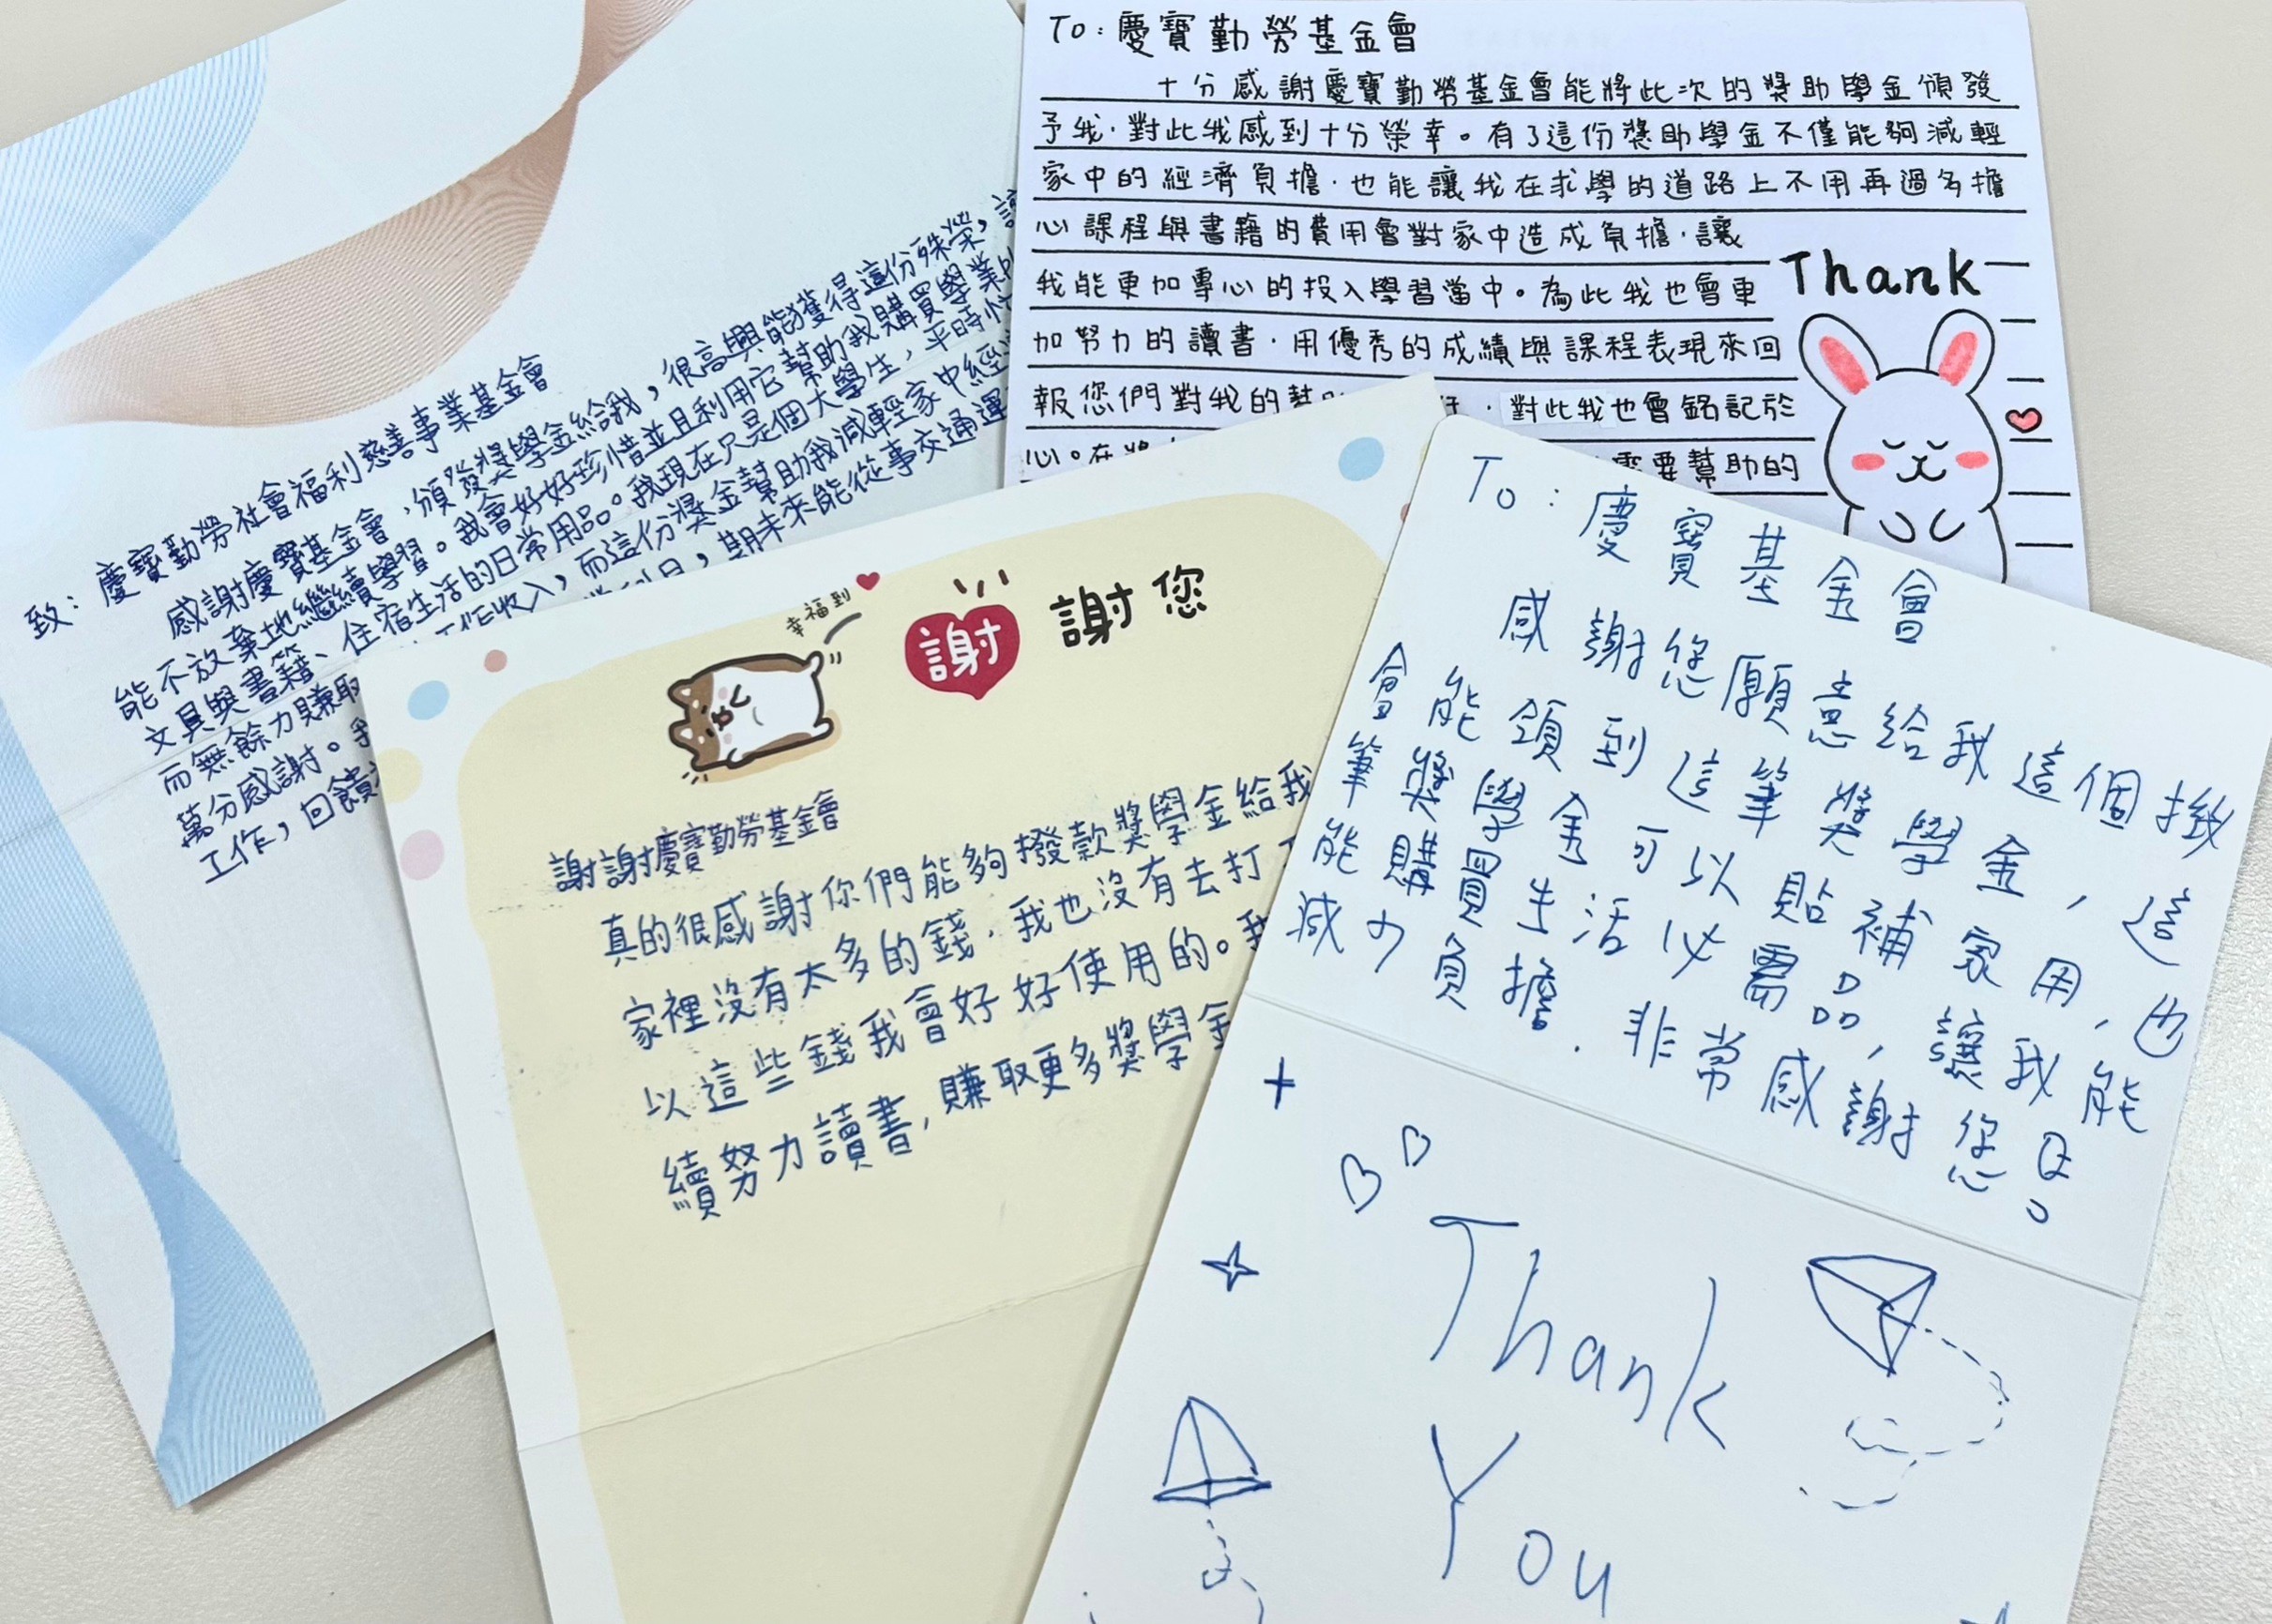 致：慶寶勤勞社會福利慈善事業基金會
感謝慶寶基金會，頒發獎學金給我，很高興能獲得這份殊榮，讓
能不放棄地繼續學習。我會好好珍惜並且利用它幫助我購買學業
文具與書籍、住宿生活的日常用品。我現在只是個大學生，平時忙
而無餘力賺取工作收入，而這份獎金幫助我減輕家中經
萬分感謝。
期未來能從事交通運
工作，回饋
To：慶寶勤勞基金會
十分感謝慶寶勤勞基金會能將此次的獎助學金頒發
予我，對此我感到十分榮幸。有了這份獎助學金不僅能夠減輕
家中的經濟負擔，也能讓我在求學的道路上不用再過多擔
心課程與書籍的費用會對家中造成負擔，讓
我能更加專心的投入學習當中。為此我也會更
加努力的讀書，用優秀的成績與課程表現來回
報您們對我的
，對此我也會銘記於
心。在將
需要幫助的
Thank
幸福到
謝
謝您
謝謝慶寶勤勞基金會
真的很感謝你們能夠撥款獎學金給我
家裡沒有太多的錢，我也沒有去打工
以這些錢我會好好使用的。我
續努力讀書，賺取更多獎學金
To：慶寶基金會
感謝您願意給我這個機
會能領到這筆獎學金，這
筆獎學金可以貼補家用，也
能購買生活必需品，讓我能
減少負擔．非常感謝您
Thank
You